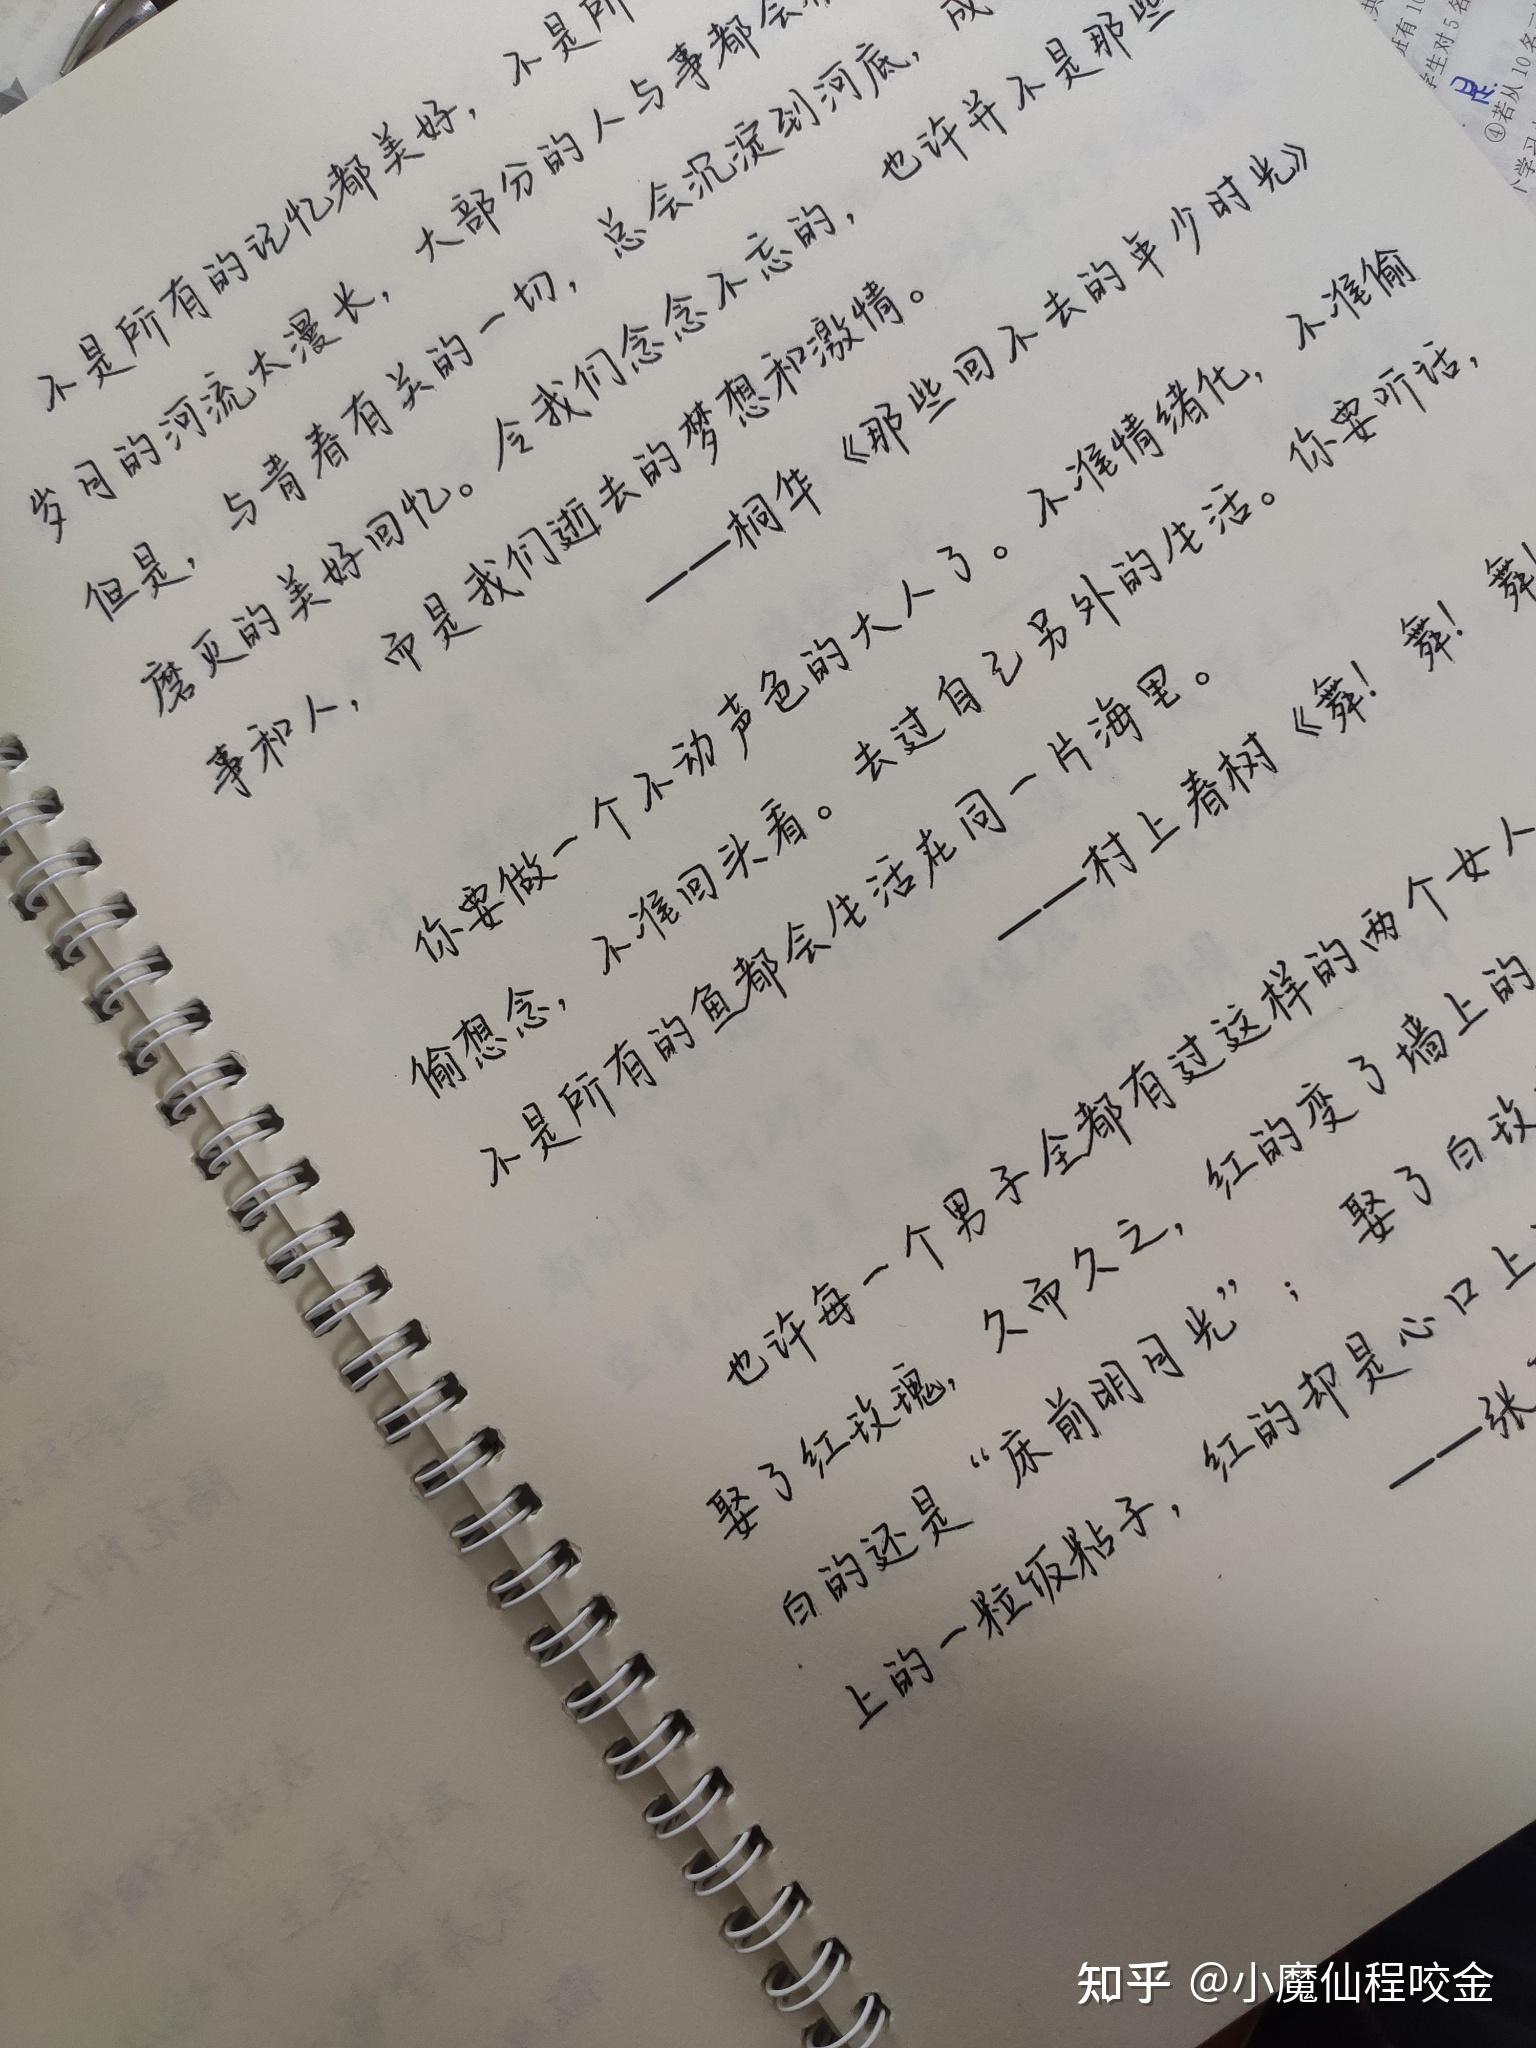 不是所有的记忆都美好，不是所
岁月的河流太漫长，大部分的人与事都会
但是，与青春有关的一切，总会沉淀到河底，成
磨灭的美好回忆。令我们念念不忘的，也许并不是那些
事和人，而是我们逝去的梦想和激情。
——桐华《那些回不去的年少时光》
你要做一个不动声色的大人了。不准情绪化，不准偷
偷想念，不准回头看。去过自己另外的生活。你要听话，
不是所有的鱼都会生活在同一片海里。
——村上春树《舞！舞！舞！
也许每一个男子全都有过这样的两个女人
娶了红玫瑰，久而久之，红的变了墙上的
白的还是“床前明月光”；娶了白玫
上的一粒饭粘子，红的却是心口上
——张
班有10
学生对5名
④若从10名
个学习
知乎 @小魔仙程咬金